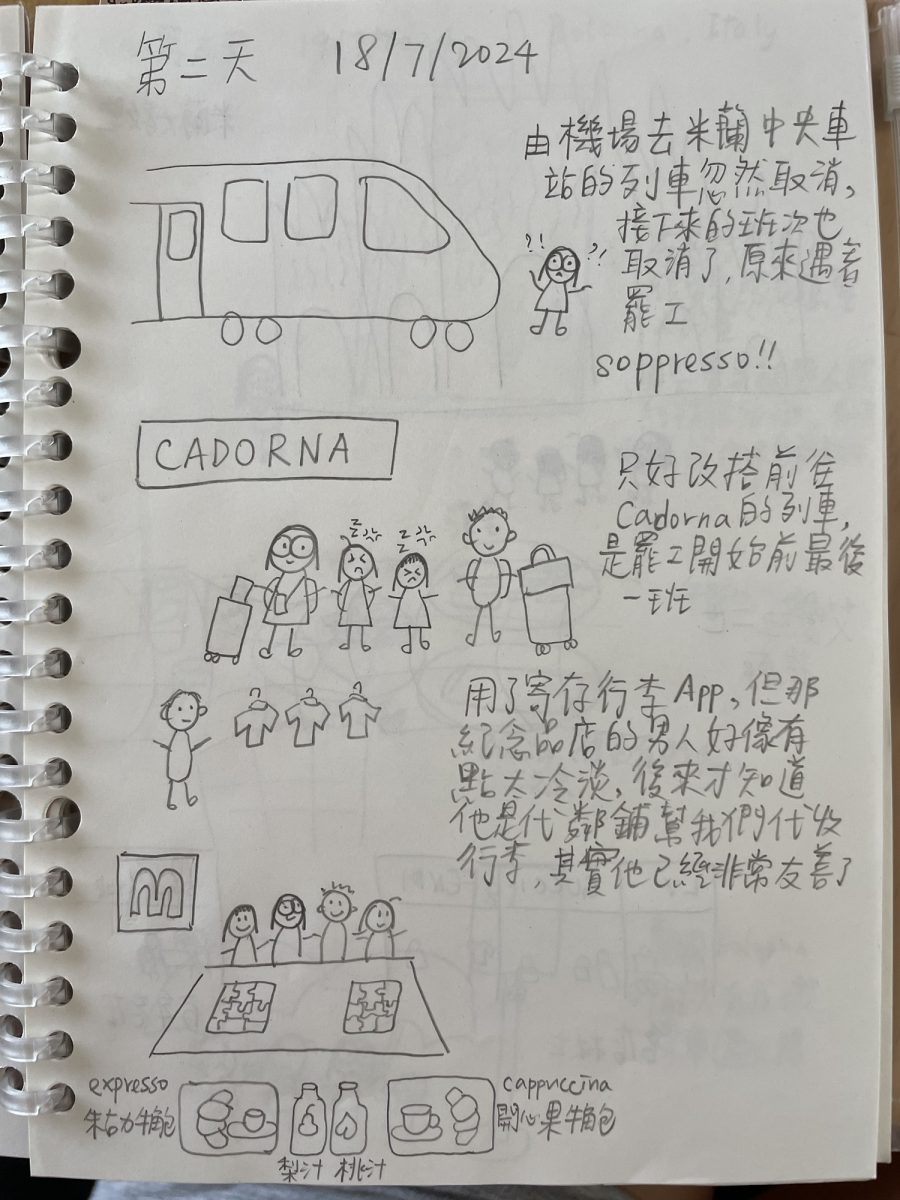 第二天 18/7/2024
由機場去米蘭中央車
站的列車忽然取消,
接下來的班次也
取消了,原來遇着
罷工
?!
?!
soppresso!!
CADORNA
只好改搭前往
Cadorna的列車,
是罷工開始前最後
一班
z
z
用了寄存行李App,但那
紀念品店的男人好像有
點太冷淡,後來才知道
他是代鄰鋪幫我們代收
行李,其實他已經非常友善了
M
expresso
朱古力牛角包
梨汁
桃汁
cappuccina
開心果牛角包